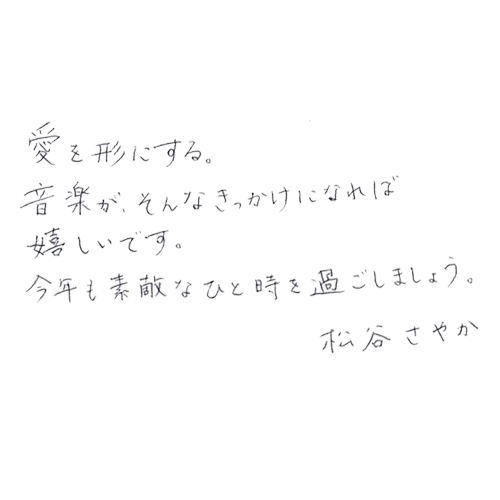 愛を形にする。
音楽が、そんなきっかけになれば
嬉しいです。
今年も素敵なひと時を過ごしましょう。
松谷さやか